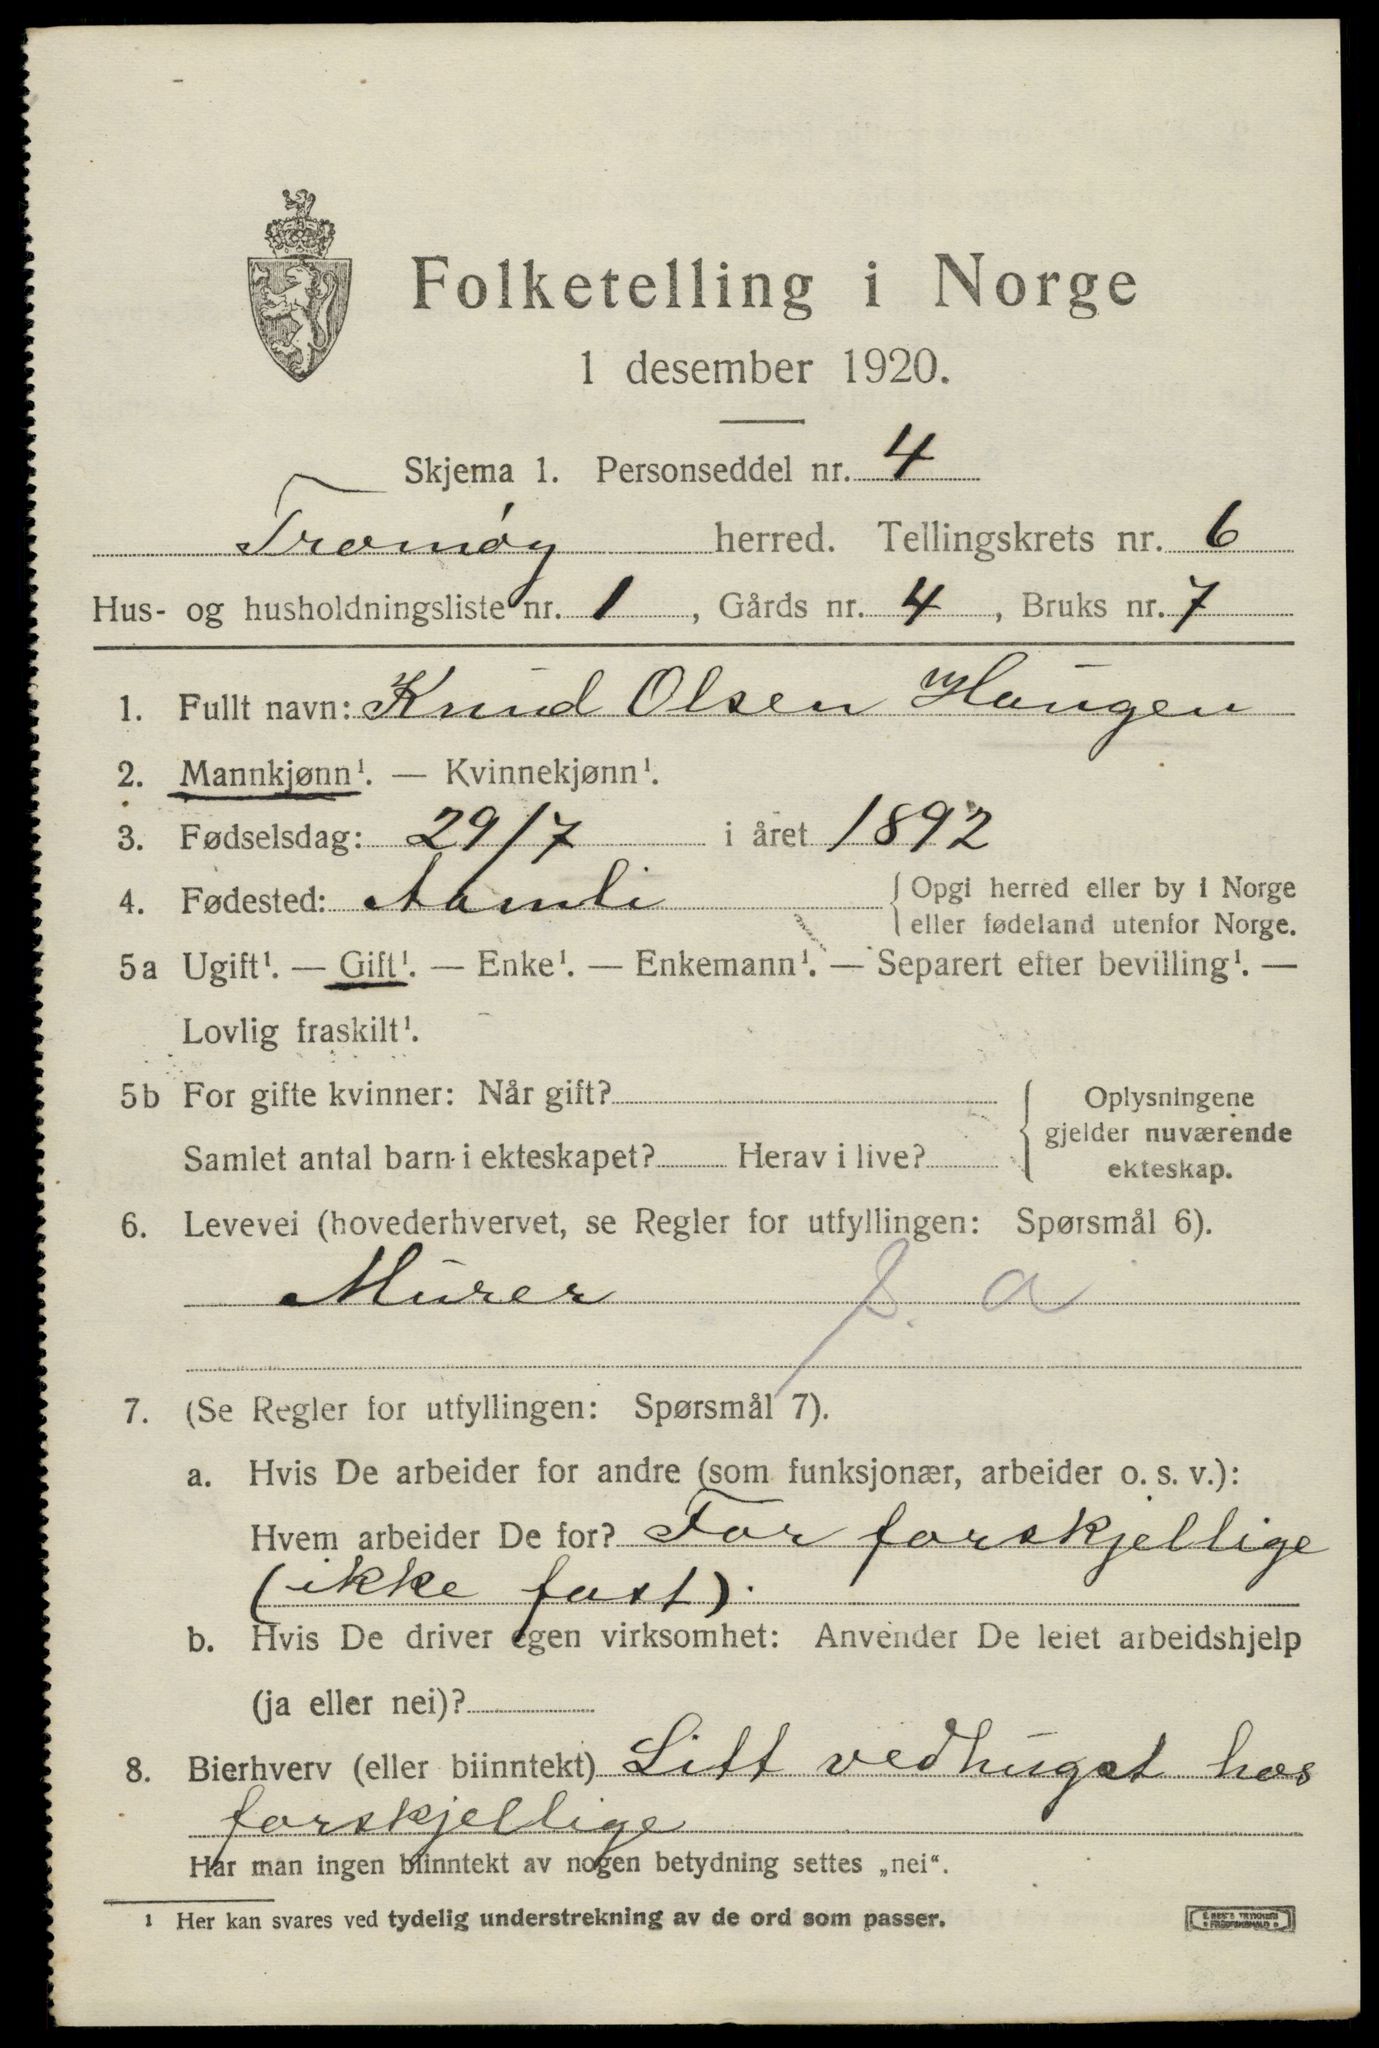 Folketelling i Norge
1 desember 1920.
Skjema 1. Personseddel nr. 4
Tromøy herred. Tellingskrets nr. 6
Hus- og husholdningsliste nr. 1, Gårds nr. 4, Bruks nr. 7
1. Fullt navn: Knud Olsen Haugen
2. Mannkjønn¹. — Kvinnekjønn¹.
3. Fødselsdag: 29/7 i året 1892
4. Fødested: Aamli { Opgi herred eller by i Norge
eller fødeland utenfor Norge.
5a Ugift¹. — Gift¹. — Enke¹. — Enkemann¹. — Separert efter bevilling¹. —
Lovlig fraskilt¹.
5b For gifte kvinner: Når gift? { Oplysningene
gjelder nuværende
Samlet antal barn i ekteskapet? Herav i live? ekteskap.
6. Levevei (hovederhvervet, se Regler for utfyllingen: Spørsmål 6).
Murer a
7. (Se Regler for utfyllingen: Spørsmål 7).
a. Hvis De arbeider for andre (som funksjonær, arbeider o. s. v.):
Hvem arbeider De for? For forskjellige
(ikke fast).
b. Hvis De driver egen virksomhet: Anvender De leiet arbeidshjelp
(ja eller nei)?
8. Bierhverv (eller biinntekt) Litt vedhugst hos
forskjellige
Har man ingen biinntekt av nogen betydning settes „nei“.
¹ Her kan svares ved tydelig understrekning av de ord som passer.